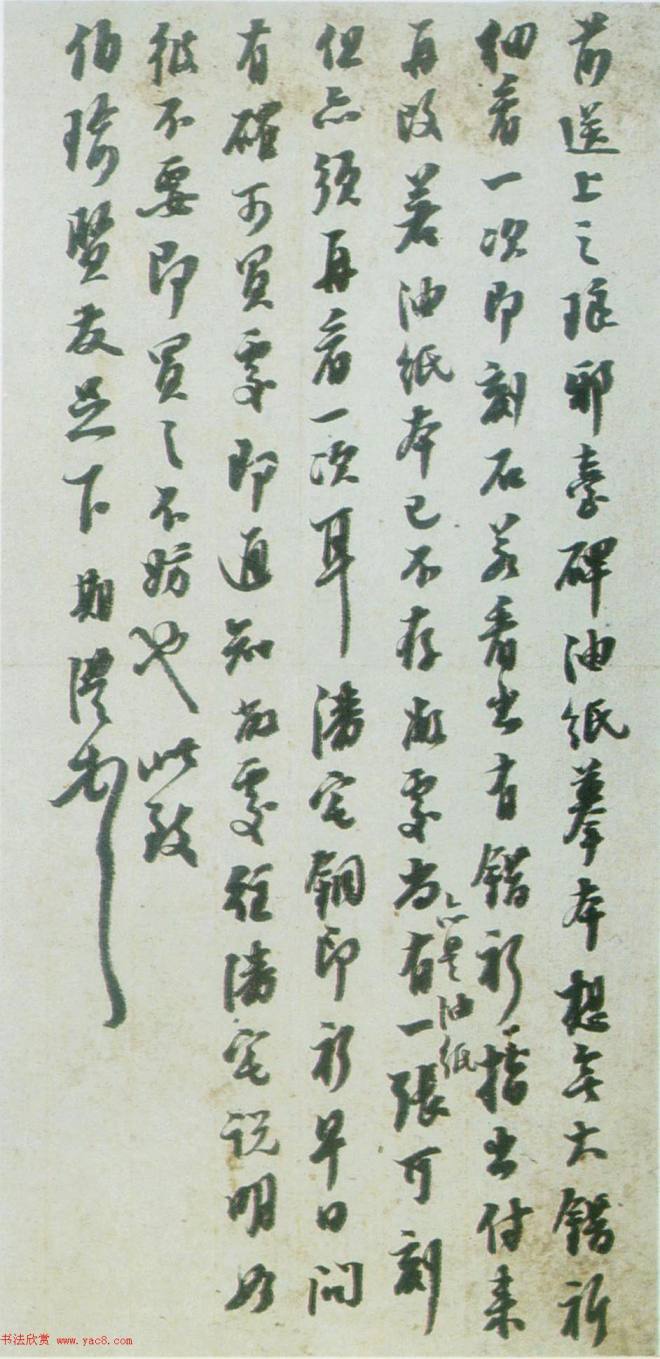 前送上之琅邪臺碑油紙摹本想無大錯祈
細看一次即刻石若看出有錯祈指出付来
再改若油紙本已不存敝處尚有一張可刻
亦是油紙
但亦須再看一次耳 潘宅銅印祈早日問
有確可買處即通知敝處往潘宅説明如
彼不要即買之不妨也 此致
伯瑜賢友足下 期澧
书法欣赏 www.yac8.com